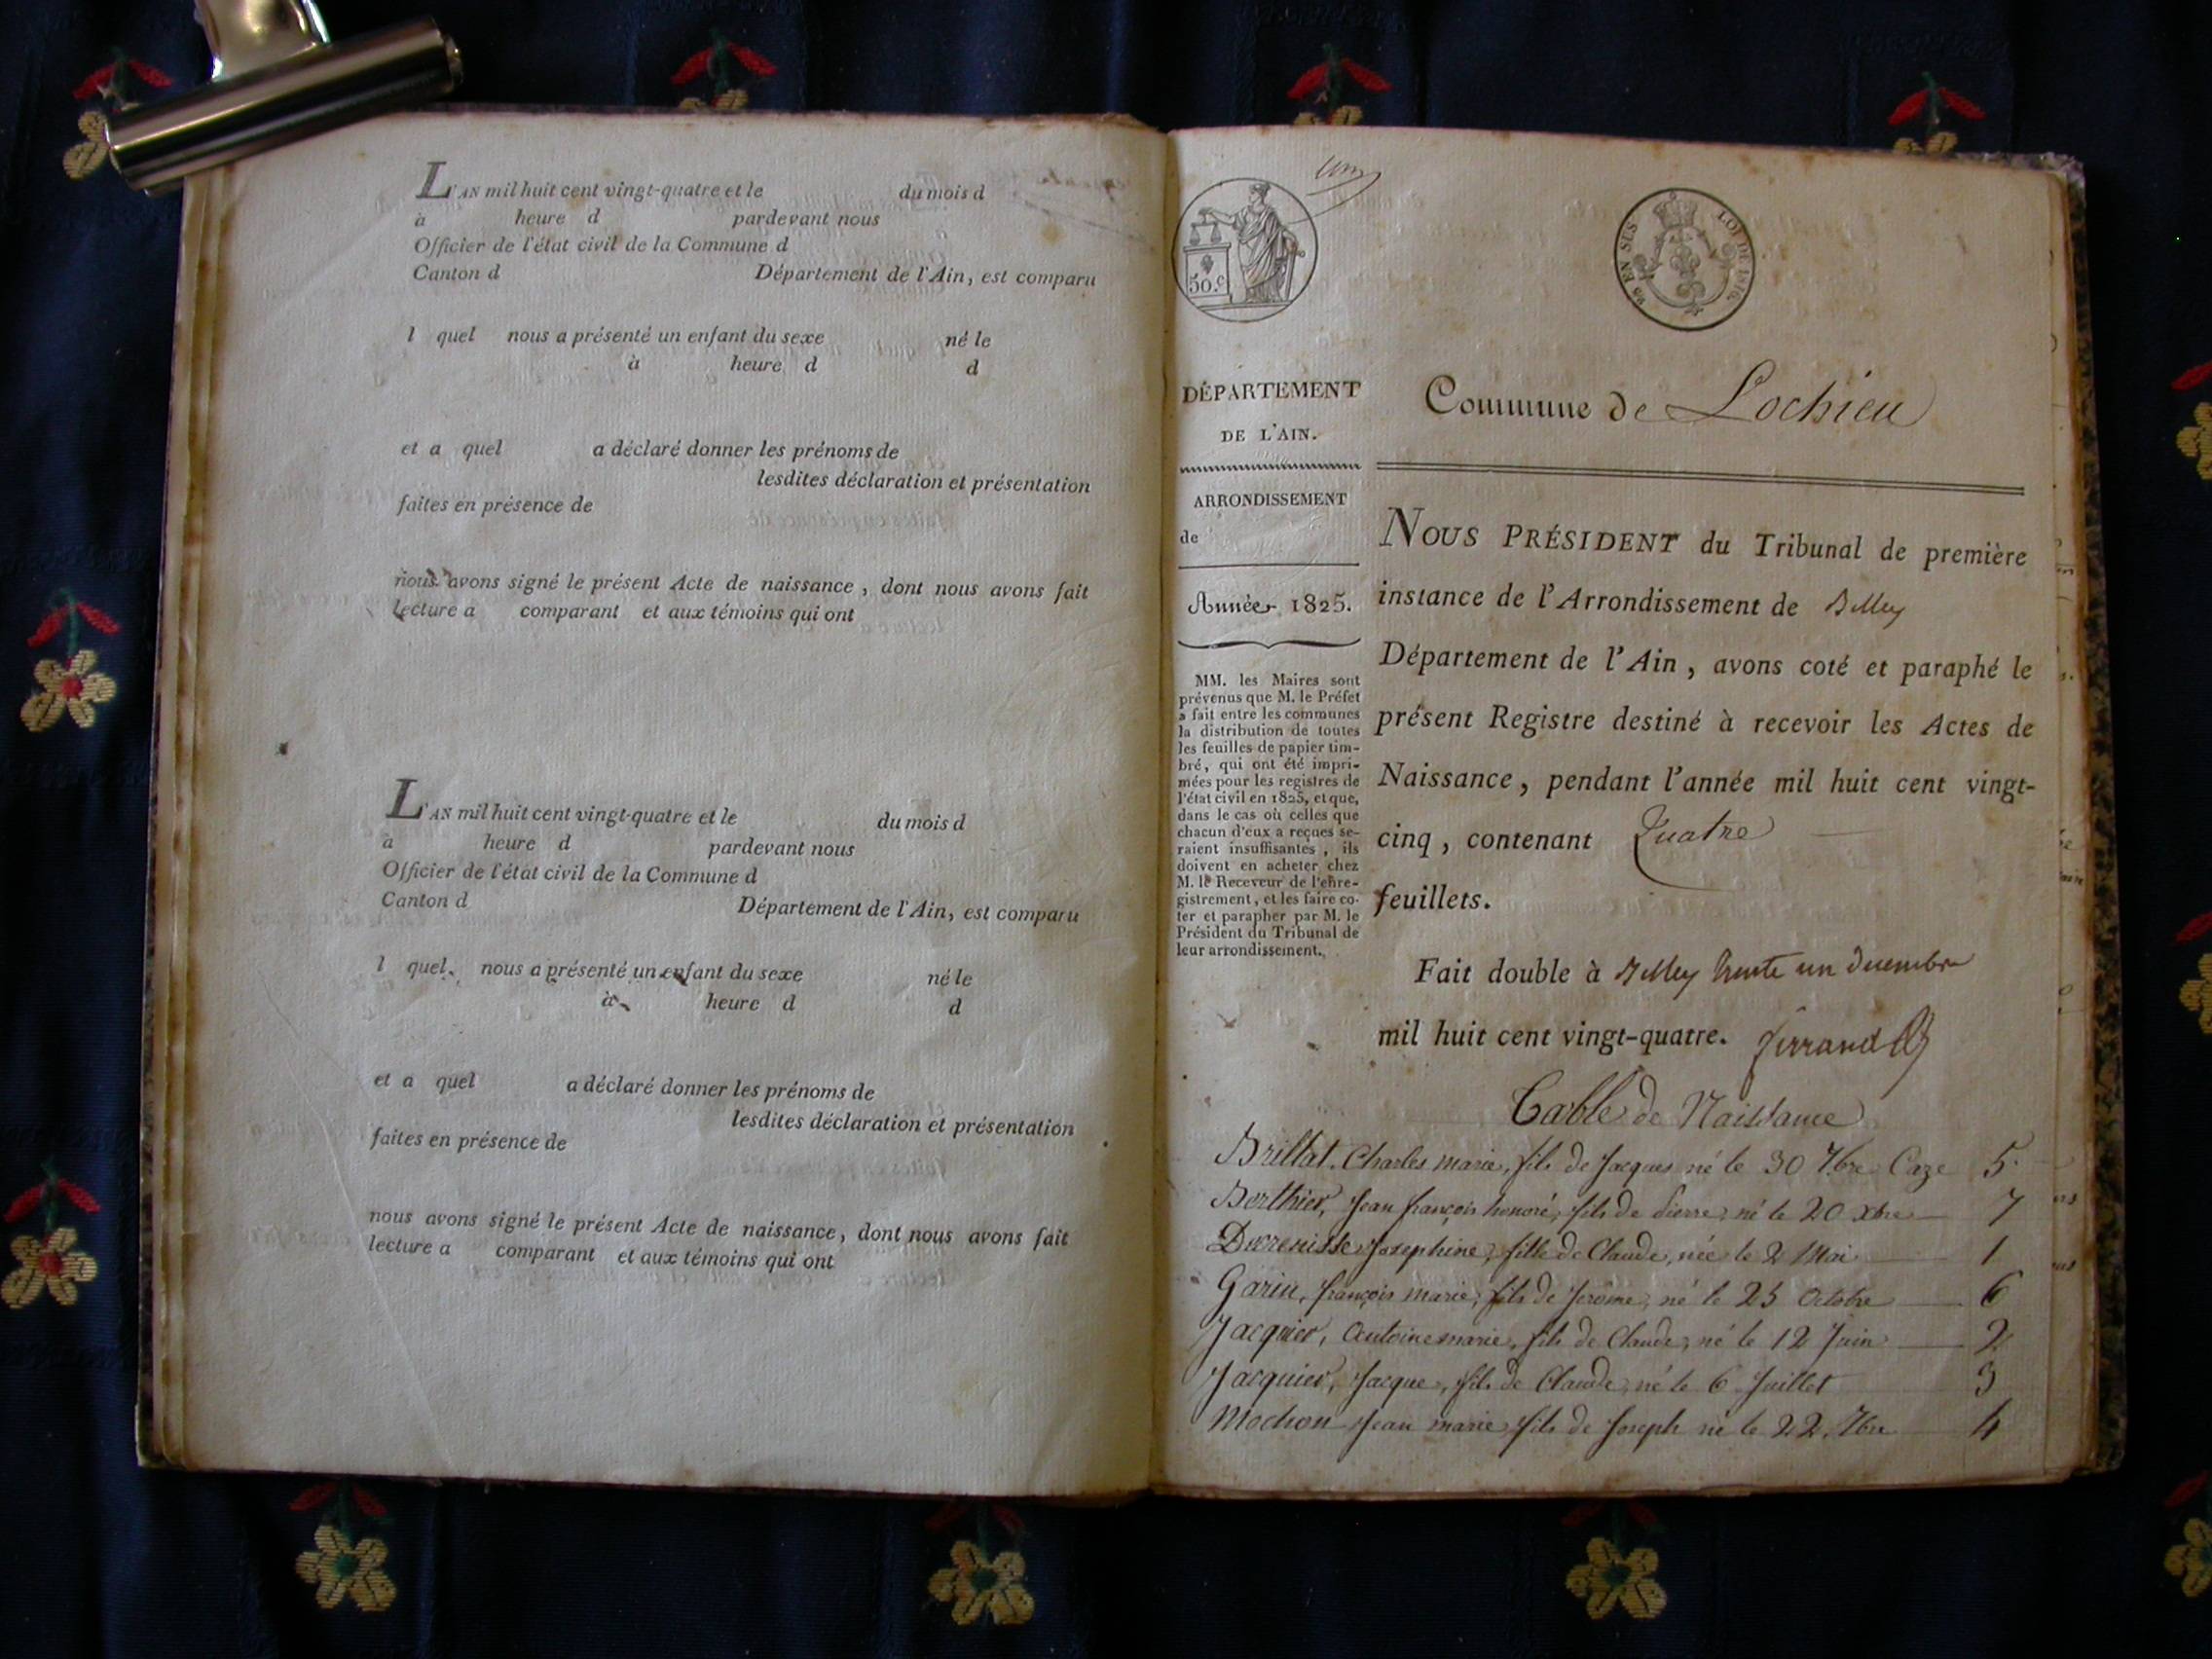 L'AN mil huit cent vingt-quatre et le du mois d
à heure d pardevant nous
Officier de l'état civil de la Commune d
Canton d Département de l'Ain, est comparu
l quel nous a présenté un enfant du sexe né le
à heure d d
et a quel a déclaré donner les prénoms de
lesdites déclaration et présentation
faites en présence de
nous avons signé le présent Acte de naissance, dont nous avons fait
lecture a comparant et aux témoins qui ont
L'AN mil huit cent vingt-quatre et le du mois d
à heure d pardevant nous
Officier de l'état civil de la Commune d
Canton d Département de l'Ain, est comparu
l quel nous a présenté un enfant du sexe né le
à heure d d
et a quel a déclaré donner les prénoms de
lesdites déclaration et présentation
faites en présence de
nous avons signé le présent Acte de naissance, dont nous avons fait
lecture a comparant et aux témoins qui ont
50.c
EN SUS LOI DE 1816.
DÉPARTEMENT
DE L'AIN.
ARRONDISSEMENT
de
Année 1825.
MM. les Maires sont
prévenus que M. le Préfet
a fait entre les communes
la distribution de toutes
les feuilles de papier tim-
bré, qui ont été impri-
mées pour les registres de
l'état civil en 1825, et que,
dans le cas où celles que
chacun d'eux a reçues se-
raient insuffisantes, ils
doivent en acheter chez
M. le Receveur de l'enre-
gistrement, et les faire co-
ter et parapher par M. le
Président du Tribunal de
leur arrondissement.
Commune de Lochieu
NOUS PRÉSIDENT du Tribunal de première
instance de l'Arrondissement de Belley
Département de l'Ain, avons coté et paraphé le
présent Registre destiné à recevoir les Actes de
Naissance, pendant l'année mil huit cent vingt-
cinq, contenant Quatre
feuillets.
Fait double à Belley trente un decembre
mil huit cent vingt-quatre. ferrand
Table de Naissance
Brillat. Charles marie, fils de Jacques né le 30 7bre Caze 5
Berthier, Jean françois honoré, fils de Pierre, né le 20 xbre 7
Ducrenisse Josephine, fille de Claude, née le 2 Mai 1
Garin, françois marie, fils de Jerôme, né le 25 Octobre 6
Jacquier, Antoine marie, fils de Claude, né le 12 Juin 2
Jacquier, Jacque, fils de Claude, né le 6 Juillet 3
Mochon Jean marie fils de Joseph né le 22. 7bre 4